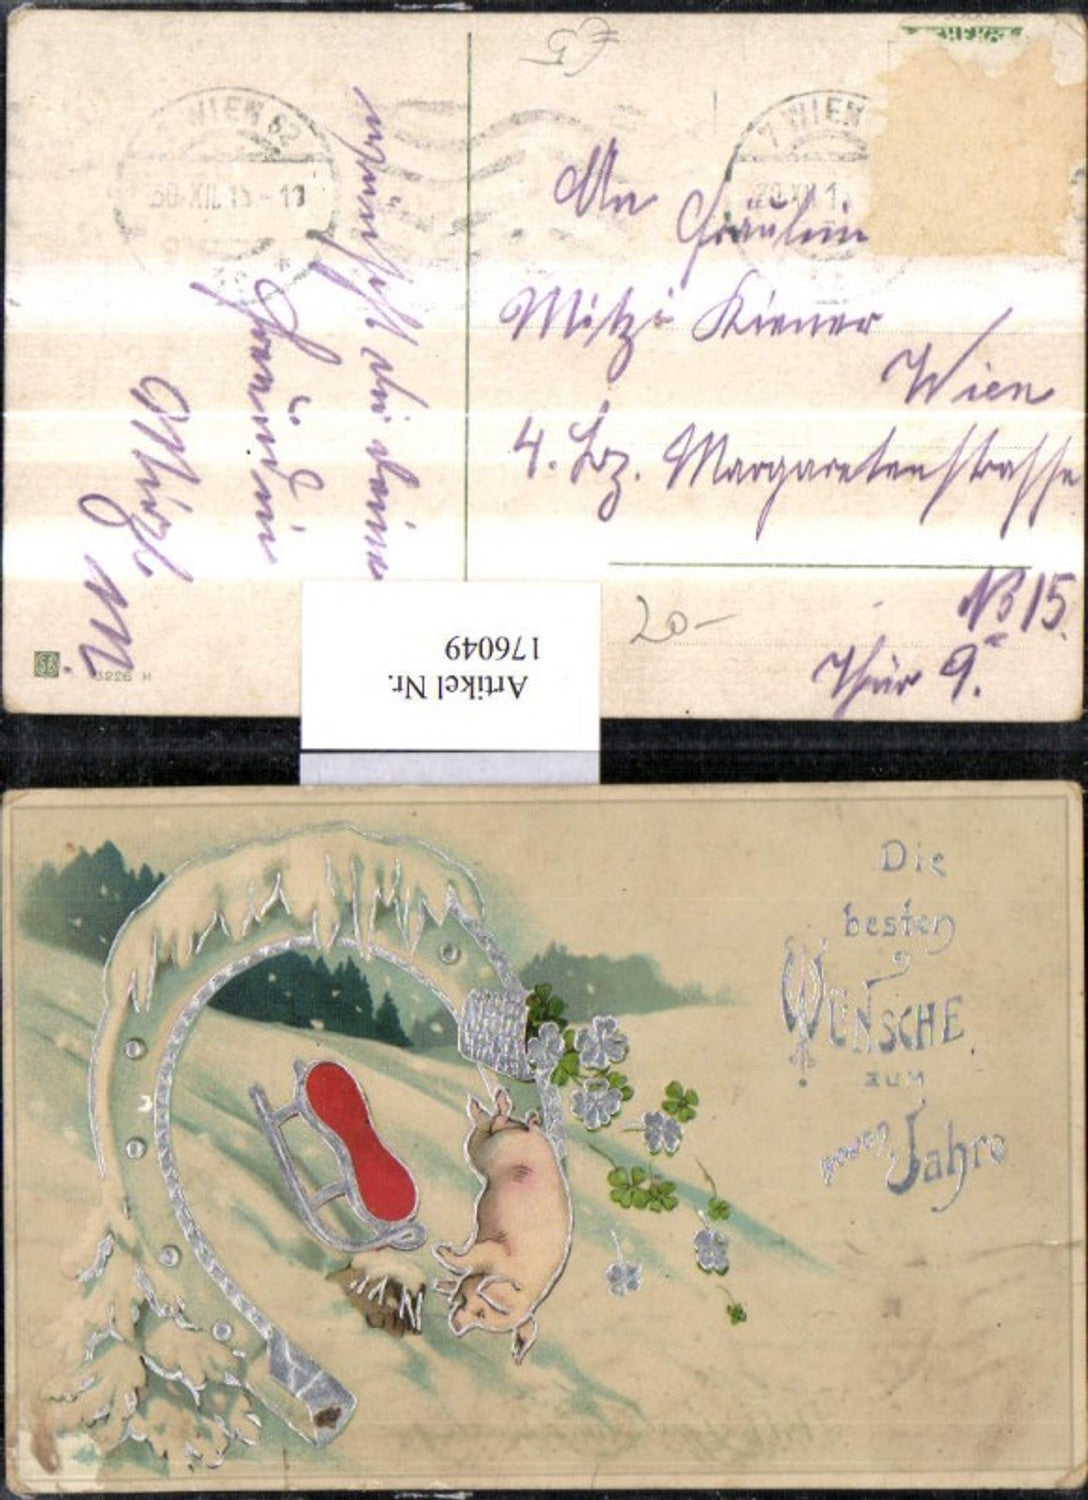 €5
WIEN 62
30.XII.13-11
7 WIEN
30.XII.1
An
Fräulein
Mitzi Kiener
Wien
4. Bz. Margaretenstrasse
No 15.
Thür 9.
wünscht dir deine
Freundin
M.
3226 H
20-
Artikel Nr.
176049
Die
besten
WÜNSCHE
zum
neuen Jahre